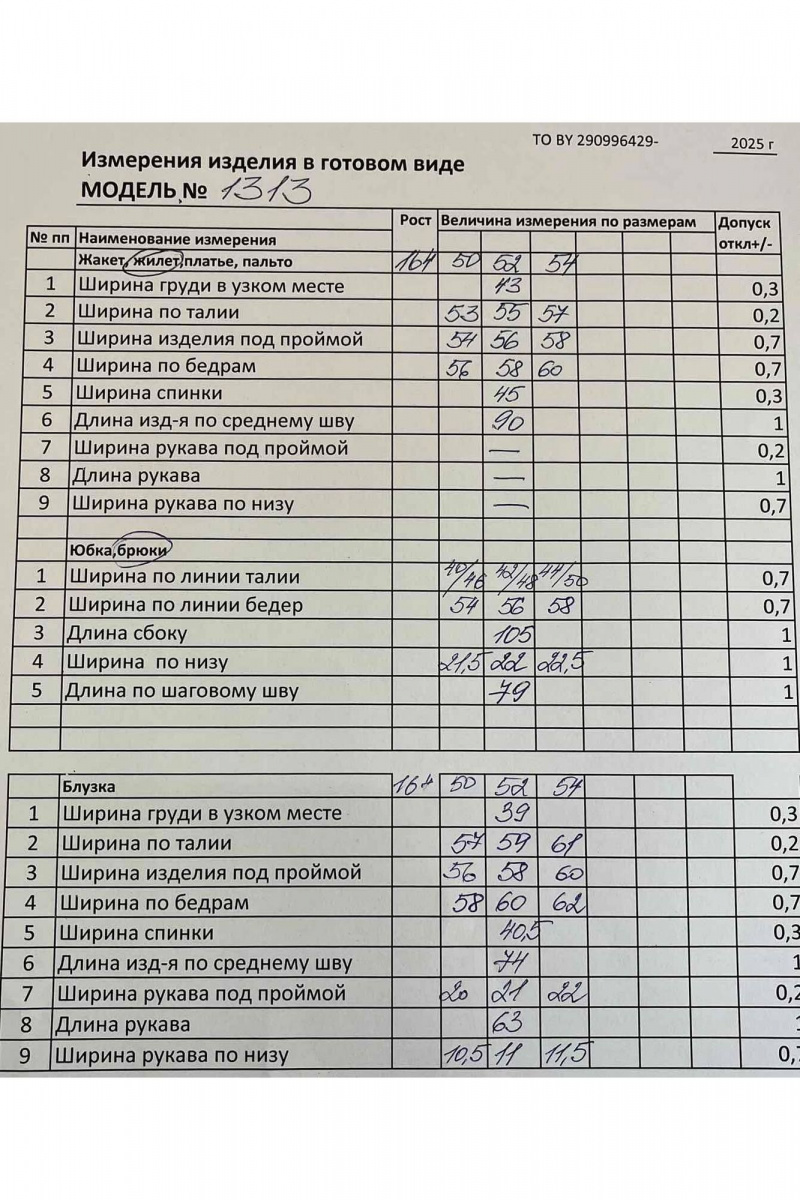 ТО BY 290996429- 2025 г
Измерения изделия в готовом виде
МОДЕЛЬ № 1313
Рост Величина измерения по размерам Допуск
№ пп Наименование измерения откл+/-
Жакет, жилет,платье, пальто 164 50 52 54
1 Ширина груди в узком месте 43 0,3
2 Ширина по талии 53 55 57 0,2
3 Ширина изделия под проймой 54 56 58 0,7
4 Ширина по бедрам 56 58 60 0,7
5 Ширина спинки 45 0,3
6 Длина изд-я по среднему шву 90 1
7 Ширина рукава под проймой — 0,2
8 Длина рукава — 1
9 Ширина рукава по низу — 0,7
Юбка,брюки
1 Ширина по линии талии 40/46 42/48 44/50 0,7
2 Ширина по линии бедер 54 56 58 0,7
3 Длина сбоку 105 1
4 Ширина по низу 21,5 22 22,5 1
5 Длина по шаговому шву 79 1
Блузка 164 50 52 54
1 Ширина груди в узком месте 39 0,3
2 Ширина по талии 57 59 61 0,2
3 Ширина изделия под проймой 56 58 60 0,7
4 Ширина по бедрам 58 60 62 0,7
5 Ширина спинки 40,5 0,3
6 Длина изд-я по среднему шву 74 1
7 Ширина рукава под проймой 20 21 22 0,2
8 Длина рукава 63 1
9 Ширина рукава по низу 10,5 11 11,5 0,7